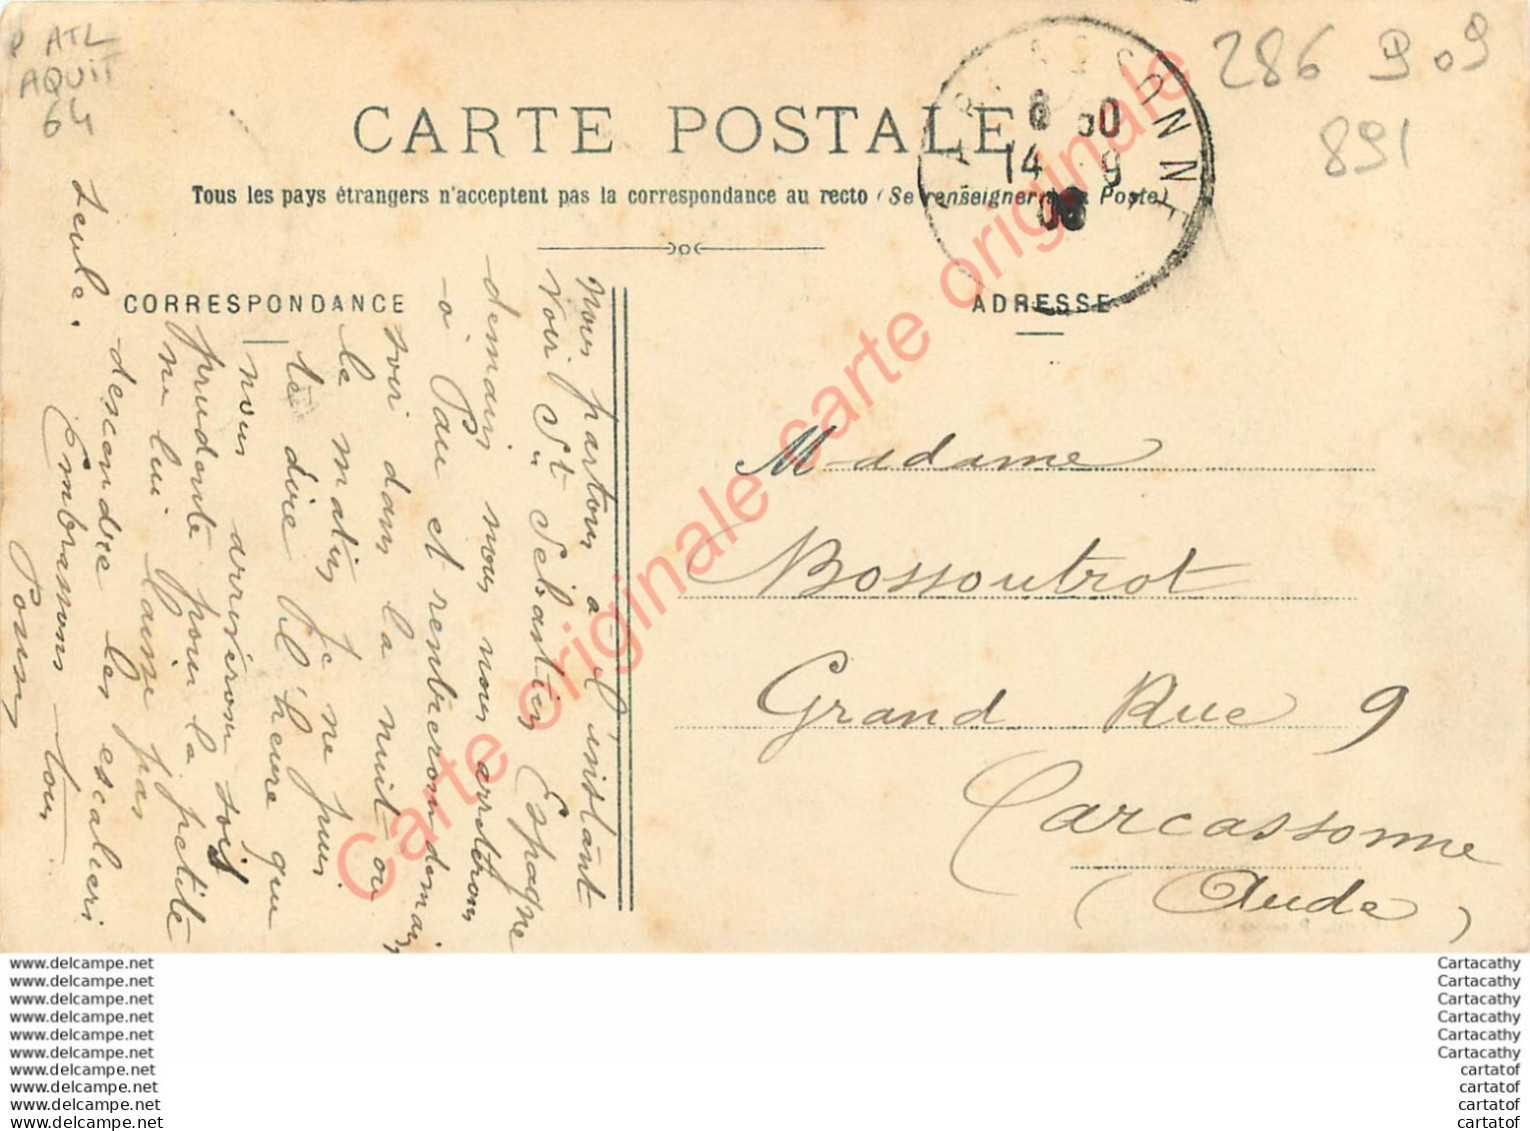 P ATL
AQUIT
64
286 909
891
CARTE POSTALE
Tous les pays étrangers n'acceptent pas la correspondance au recto (Se renseigner Poste)
8 50
14 9
08
CORRESPONDANCE
ADRESSE
Nous partons à l'instant
voir St Sébastien Espagne
demain nous nous arretrons
à Pau et rentrerons demain
soir dans la nuit ou
le matin je ne puis
te dire l'heure que
nous arriverons sois
prudente pour la petite
ne lui laisse pas
descendre les escaliers
seule.
Embrassons tous
Madame
Bossoutrot
Grand Rue 9
Carcassonne
(Aude)
Carte originale carte originale
www.delcampe.net
www.delcampe.net
www.delcampe.net
www.delcampe.net
www.delcampe.net
www.delcampe.net
www.delcampe.net
www.delcampe.net
www.delcampe.net
www.delcampe.net
Cartacathy
Cartacathy
Cartacathy
Cartacathy
Cartacathy
Cartacathy
cartatof
cartatof
cartatof
cartatof